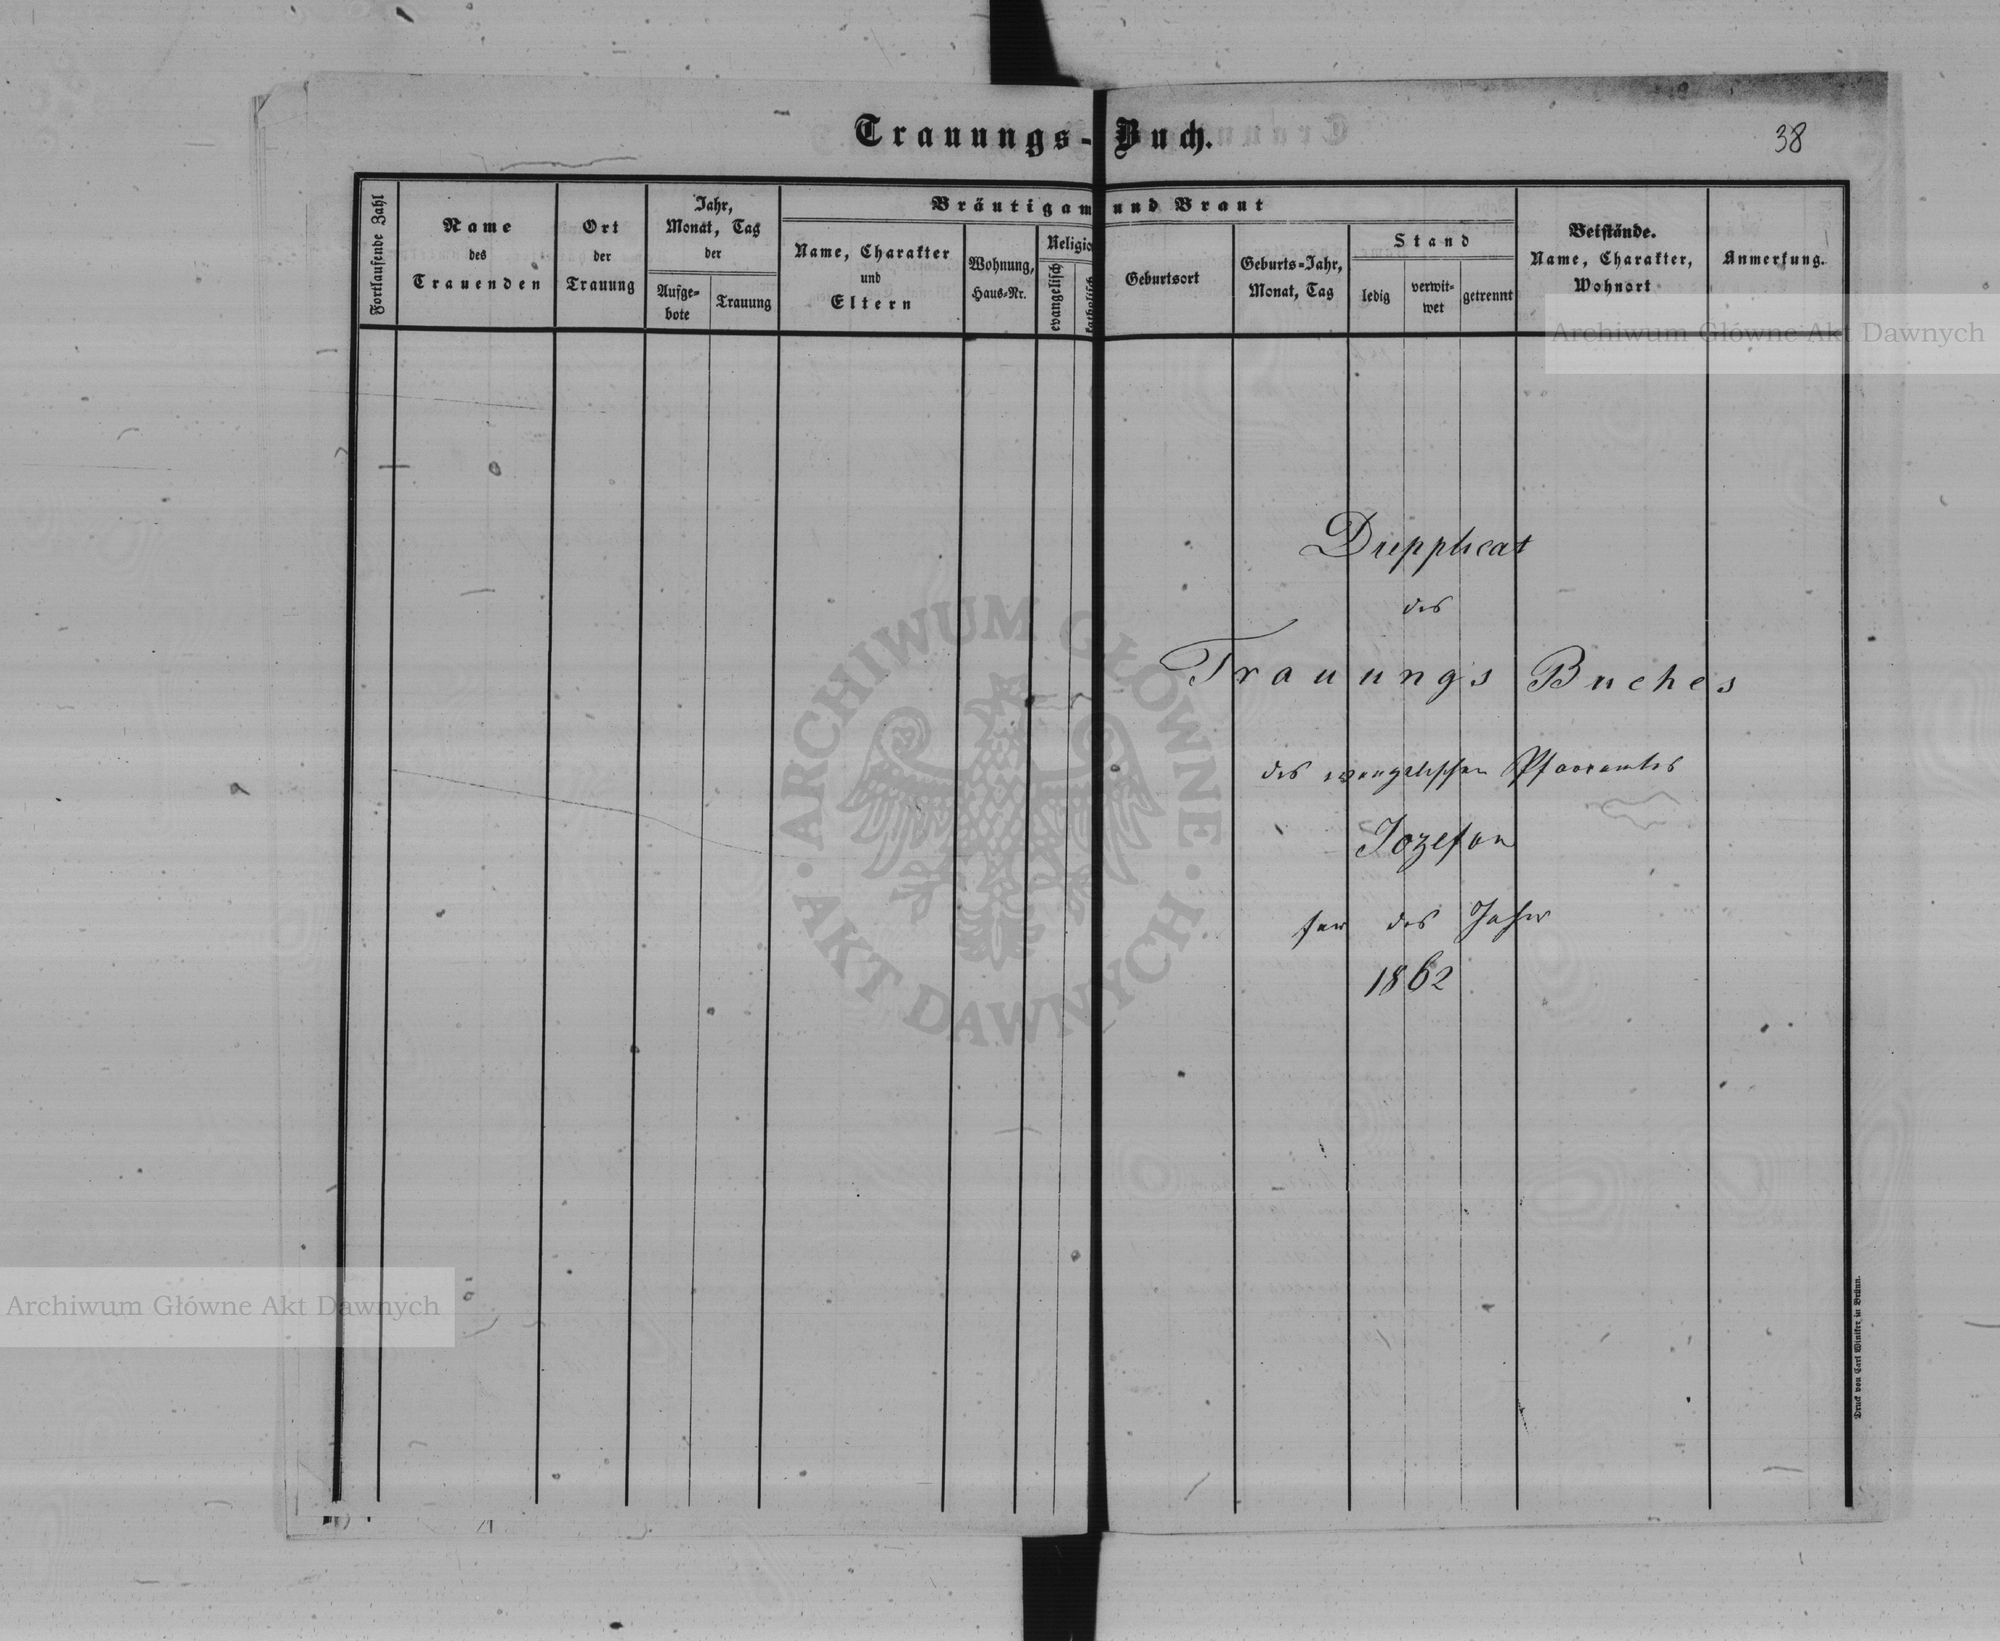 Trauungs-Buch.
38
Fortlaufende Zahl
Name
des
Trauenden
Ort
der
Trauung
Jahr,
Monat, Tag
der
Aufge-
bote
Trauung
Bräutigam und Braut
Name, Charakter
und
Eltern
Wohnung,
Haus-Nr.
Religio
evangelisch
katholisch
Geburtsort
Geburts-Jahr,
Monat, Tag
Stand
ledig
verwit-
wet
getrennt
Beistände.
Name, Charakter,
Wohnort
Anmerkung.
Archiwum Główne Akt Dawnych
Dupplicat
des
Trauungs Buches
des evangelischen Pfarramtes
Jozefow
fur das Jahr
1862
ARCHIWUM GŁÓWNE · AKT DAWNYCH ·
Archiwum Główne Akt Dawnych
Druck von Carl Winiker in Brünn.